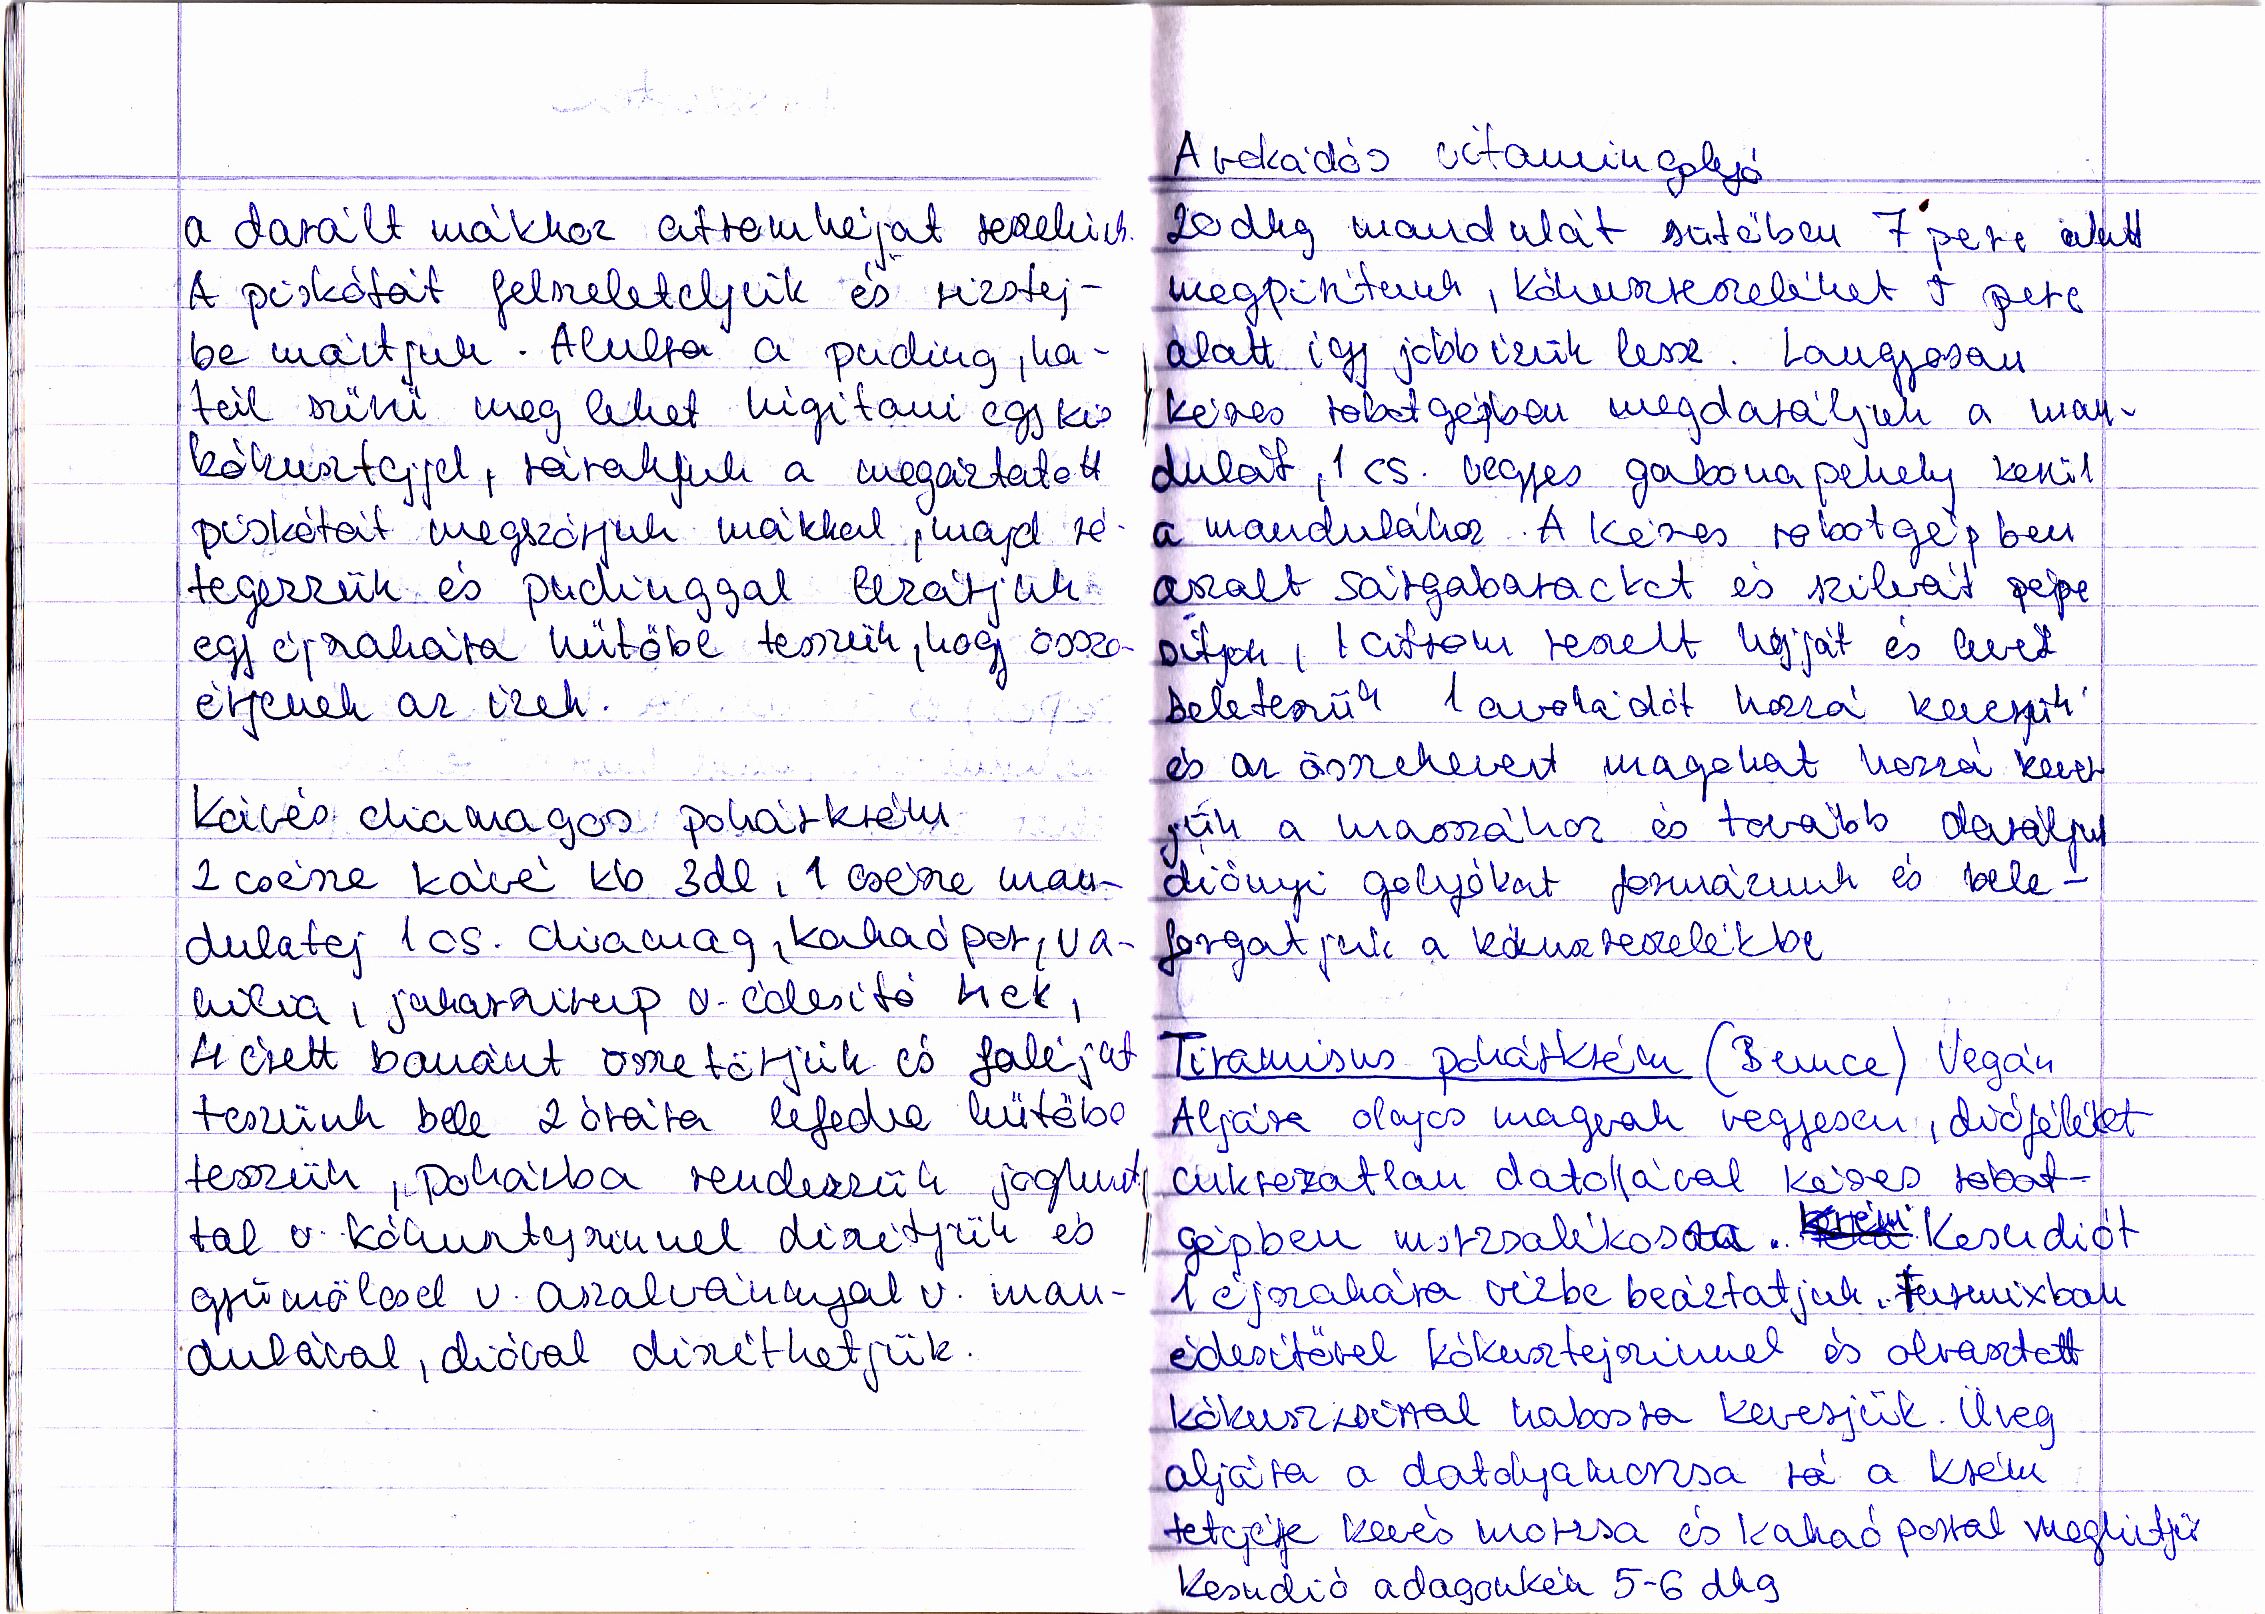 a darált mákhoz citromhéjat reszelünk.
A piskótát felszeleteljük és rizstej-
be mártjuk. Alulra a puding, ha
túl sűrű meg lehet higitani egy kis
kókusztejjel, rárakjuk a megáztatott
piskótát megszórjuk mákkal, majd ré-
tegezzük és pudinggal lezárjuk
egy éjszakára hűtőbe tesszük, hogy össze-
érjenek az izek.
Kávés chiamagos pohárkrém
2 csésze kávé kb 3dl, 1 csésze man-
dulatej 1 cs. chiamag, kakaópor, va-
nilia, juharszirup v. édesítő 4ek,
4 érett banánt összetörjük és faléját
teszünk bele 2 órára lefedve hűtőbe
tesszük, pohárba rendezzük joghurt
tal v. kókusztejszinnel díszitjük és
gyümölcsel v. aszalvánnyal v. man-
dulával, dióval díszíthetjük.
Avokádós vitamingolyó
20dkg mandulát sütőben 7 perc alatt
megpiritunk, kókuszreszeléket 5 perc
alatt igy jobb izük lesz. Langyosan
késes robotgépben megdaráljuk a man-
dulát, 1 cs. vegyes gabonapehely kerül
a mandulához. A késes robotgépben
aszalt sárgabarackot és szilvát pépe
sitjük, 1 citrom reszelt héjját és levét
beletesszük 1 avokádót hozzá keverjük
és az összekevert magokat hozzá kever
jük a masszához és tovább daráljuk
diónyi golyókat formázunk és bele-
forgatjuk a kókuszreszelékbe
Tiramisus pohárkrém (Bence) Vegán
Aljára olajos magvak vegyesen, dióféléket
cukrozatlan datolyával késes robot-
gépben morzsalékosra. Kesudiót
1 éjszakára vízbe beáztatjuk. Turmixban
édesítővel kókusztejszinnel és olvasztott
kókuszzsirral habosra keverjük. Üveg
aljára a datolyamorzsa rá a krém
tetejéje kevés morzsa és kakaó porral meghintjü
Kesudió adagonkén 5-6 dkg